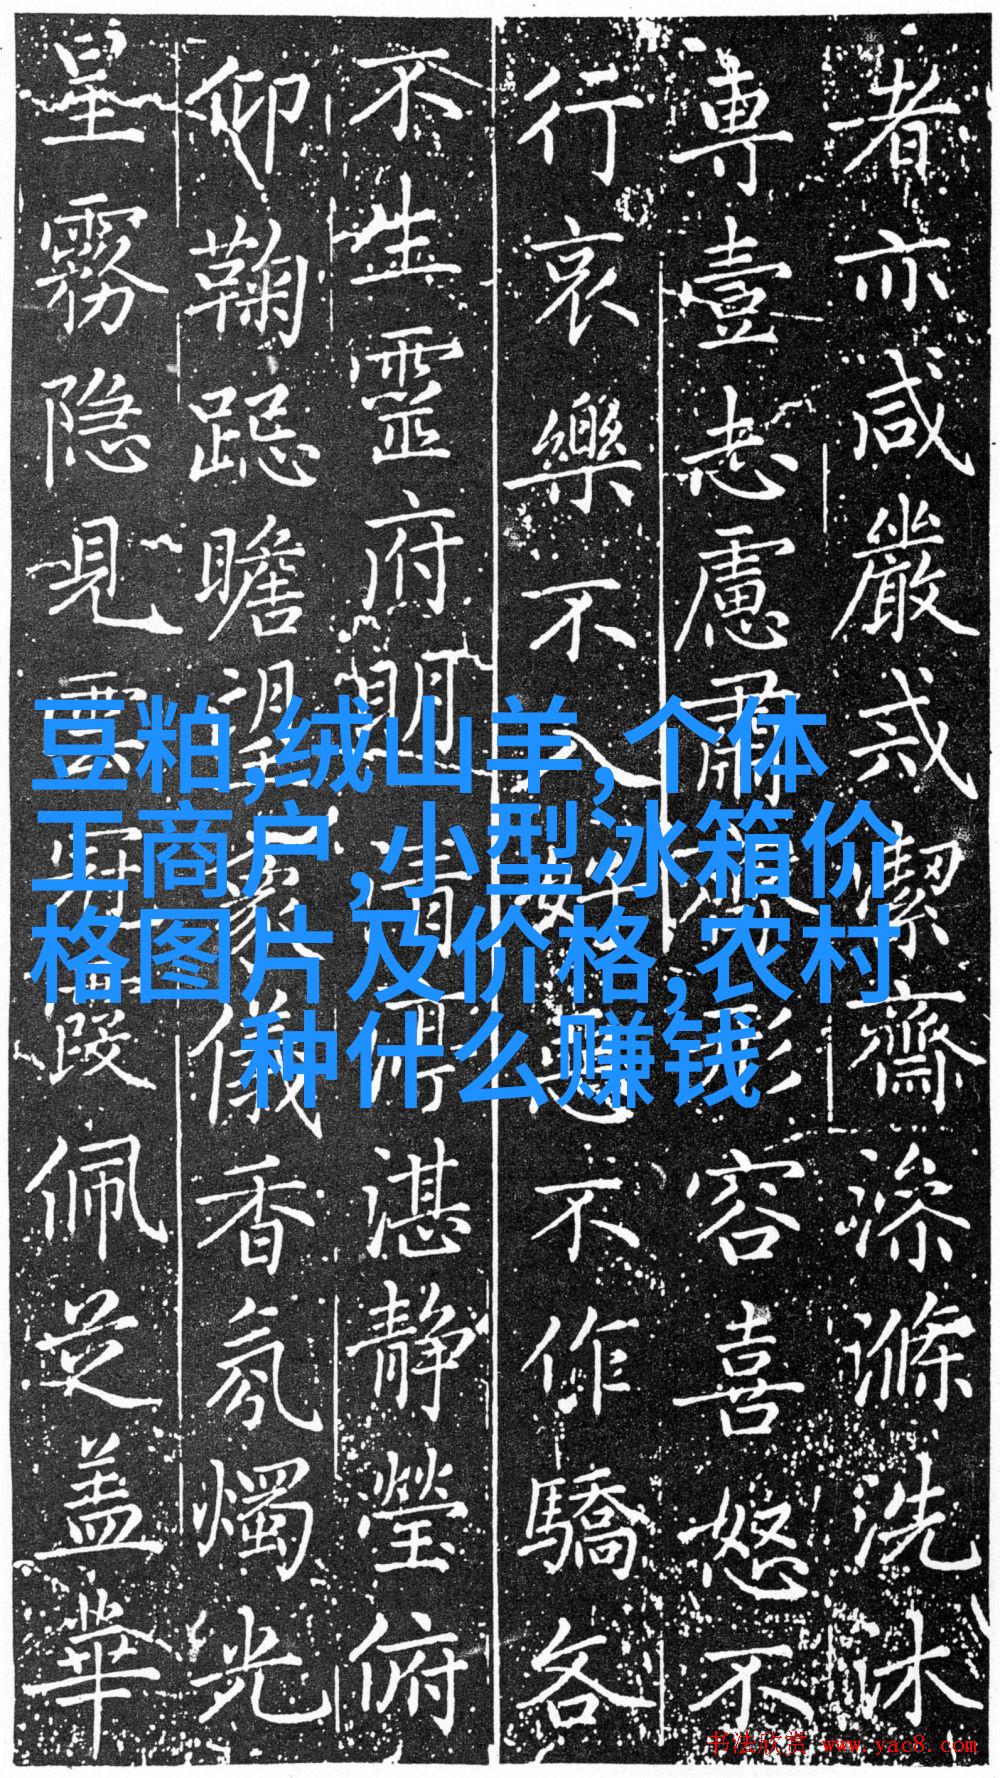 者亦咸嚴戒潔齋滌洗沐
專壹志慮肅形容喜怒不
行哀樂不入好惡不作驕各
不生靈府朗清湛静瑩俯
仰鞠跽瞻望象儀香氛燭光
星霧隐見雲冠霞佩芝盖華
豆粕,绒山羊,个体
工商户,小型冰箱价
格图片及价格,农村
种什么赚钱
书法欣赏 www.yac8.com